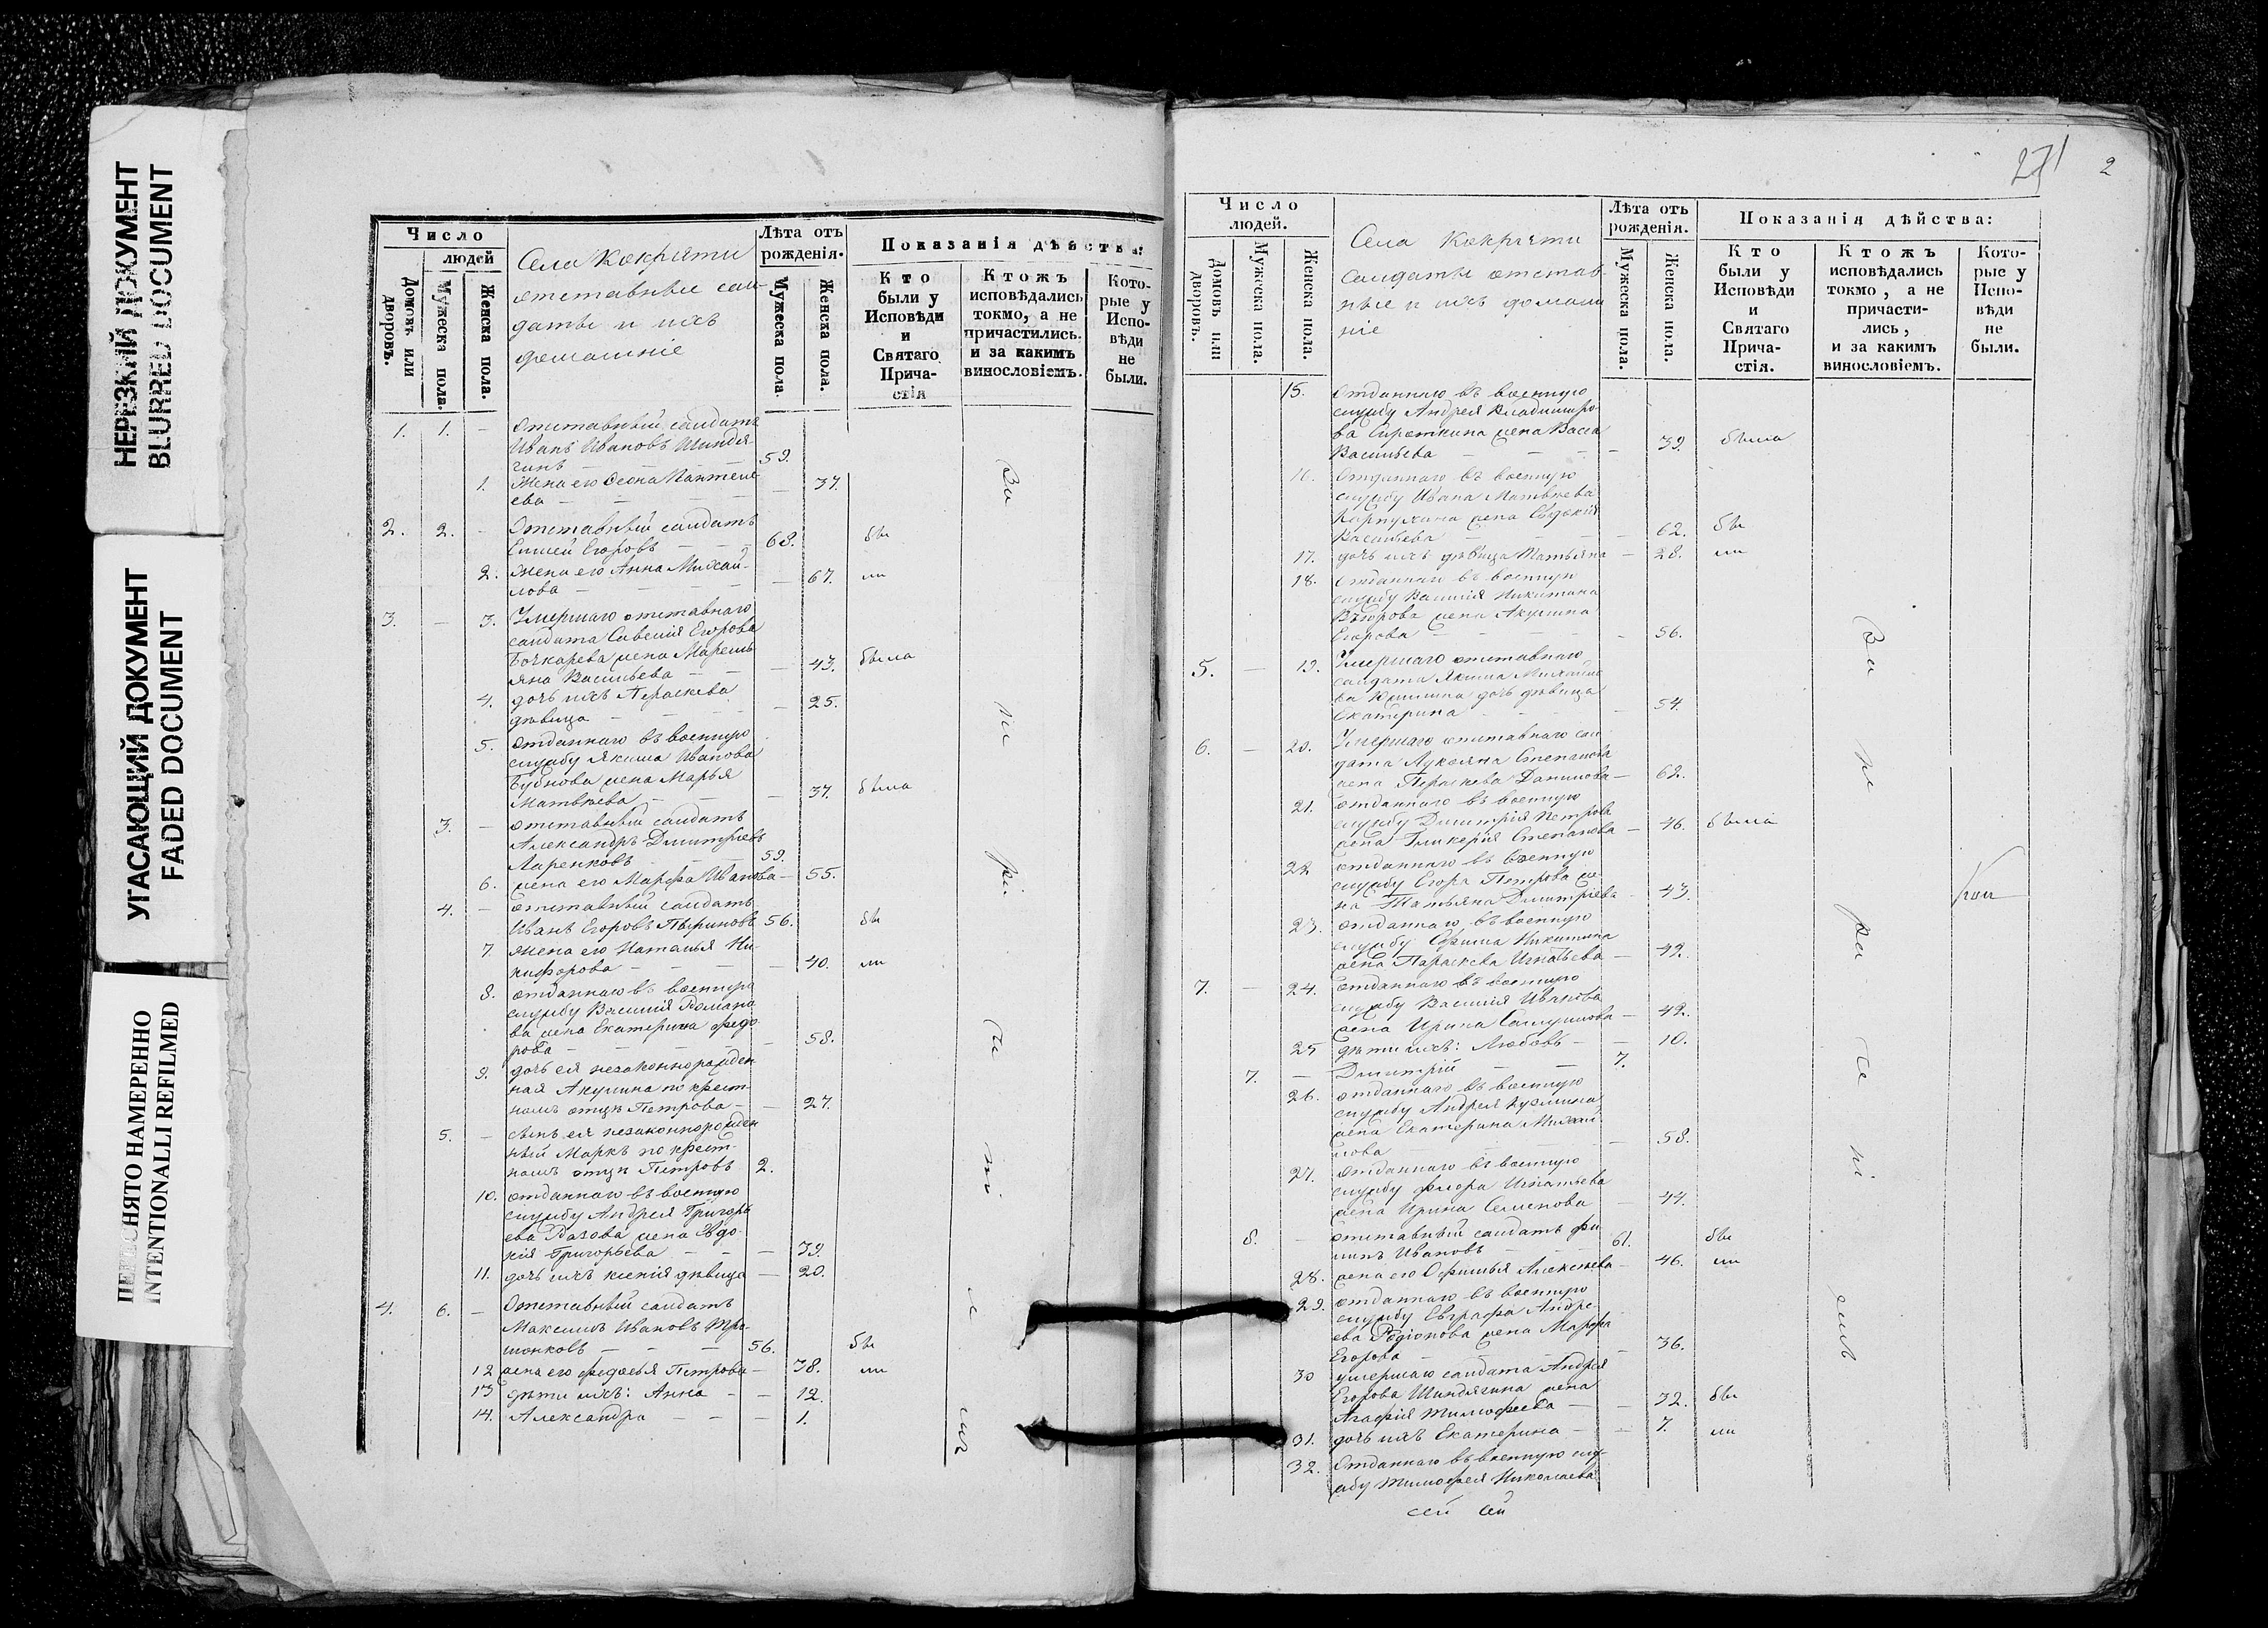 НЕРЕЗКИЙ ДОКУМЕНТ
BLURRED DOCUMENT
УГАСАЮЩИЙ ДОКУМЕНТ
FADED DOCUMENT
ПЕРЕСНЯТО НАМЕРЕННО
INTENTIONALLI REFILMED
Число
людей
Домовъ или дворовъ.
Мужеска пола.
Женска пола.
Села Кокряти
отставные сол-
даты и ихъ
домашніе
Лѣта отъ
рожденія.
Мужеска пола
Женска пола.
Показанія дѣйства:
Кто
были у
Исповѣди
и
Святаго
Прича-
стія
Ктожъ
исповѣдались
токмо, а не
причастились.
и за какимъ
винословіемъ.
Кото-
рые у
Испо-
вѣди
не
были.
1. 1. – Отставный солдатъ
Иванъ Ивановъ Шиндя-
гинъ – – – 59.
1. Жена его Ѳеона Пантеле-
ева – – – 37.
2. 2. – Отставный солдатъ
Елисей Егоровъ – – 68. бы
2. Жена его Анна Михай-
лова – – – 67. ли
3. – 3. Умершаго отставнаго
солдата Савелія Егорова
Бочкарева жена Марем-
яна Васильева – – 43. была
4. дочь ихъ Параскева
дѣвица – – – 25.
5. отданнаго въ военную
службу Якима Иванова
Бубнова жена Марья
Матвѣева – – – 37. была
3. – отставный солдатъ
Александръ Димитріевъ
Ларенковъ – – 59.
6. жена его Марфа Иванова – 55.
4. – отставный солдатъ
Иванъ Егоровъ 56. бы
7. Жена его Наталья Ни-
кифорова – – – 40. ли
8. отданнаго въ военную
службу Василія Романо
ва жена Екатерина Федо
рова – – – 58.
9. дочь ея незаконнорожден
ная Акулина по крест-
номъ отцѣ Петрова – 27.
5. – сынъ ея незаконнорожден
ный Маркъ по крест-
номъ отцѣ Петровъ 2.
10. отданнаго въ военную
службу Андрея Григорь
ева жена Евдо-
кія Григорьева – – – 39.
11. дочь ихъ Ксенія дѣвица – 20.
4. 6. – Отставный солдатъ
Максимъ Ивановъ Тро-
шонковъ – – – 56. бы
12 жена его Федосья Петрова – 38. ли
13 дѣти ихъ: Анна – – 12.
14. Александра – – – 1.
271 2
Число
людей.
Домовъ или дворовъ.
Мужеска пола.
Женска пола.
Села Кокряти
солдаты отстав-
ные и ихъ домаш
ніе
Лѣта отъ
рожденія.
Мужеска пола.
Женска пола.
Показанія дѣйства:
Кто
были у
Исповѣди
и
Святаго
Прича-
стія.
Ктожъ
исповѣдались
токмо, а не
причасти-
лись,
и за какимъ
винословіемъ.
Кото-
рые у
Испо-
вѣди
не
были.
15. Отданнаго въ военную
службу Андрея Владимиро
ва Сироткина жена Васса
Васильева – – – 39. была
16. Отданнаго въ военную
службу Ивана Матвѣева
Карпухина жена Евдокія
Васильева – – – 62. бы
17. дочь ихъ дѣвица Татьяна – 28. ли
18. Отданнаго въ военную
службу Василія Никитина
жена Акулина
Егорова – – – 56.
5. – 19. Умершаго отставнаго
солдата Якима Михайло
ва дочь дѣвица
Екатерина – – – 54.
6. – 20. Умершаго отставнаго сол
дата Лукояна Степанова
жена Параскева Данилова – 62.
21. отданнаго въ военную
службу Димитрія Петрова
жена Гликерія Степанова – 46. была
22 отданнаго въ военную
службу Егора Петрова же
на Татьяна Димитріева – 43.
23. отданнаго въ военную
службу Ефима Никитина
жена Параскева Игнатьева – 42.
7. – 24. отданнаго въ военную
службу Василія Иванова
жена Ирина Самуилова – 42.
25 дѣти ихъ: Любовь – – 10.
7. – Димитрій – – 7.
26. отданнаго въ военную
службу Андрея Кузмина
жена Екатерина Михай
лова – – – 58.
27. отданнаго въ военную
службу Флора Игнатьева
жена Ирина Семенова – 44.
8. – отставный солдатъ Фи
липъ Ивановъ – – 61. бы
28. жена его Офимья Алексеева – 46. ли
29. отданнаго въ военную
службу Евграфа Андре-
ева Родіонова жена Марфа
Егорова – – – 36.
30 умершаго солдата Андрея
Егорова Шиндягина жена
Агафія Тимофеева – – 32. бы
31. дочь ихъ Екатерина – – 7. ли
32. Отданнаго въ военную слу-
жбу Тимофея Николаева